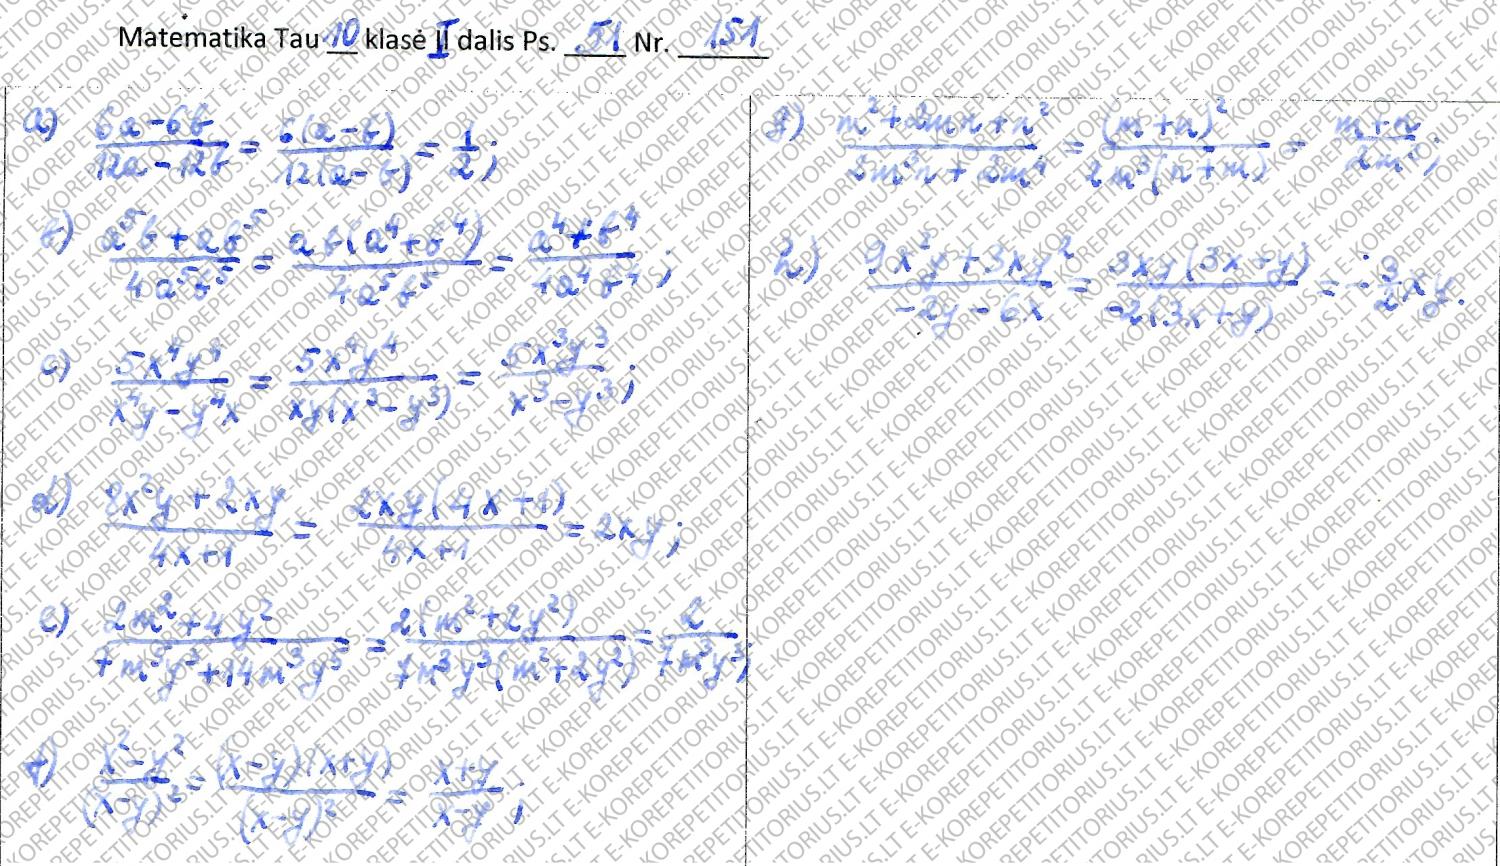 Matematika Tau 10 klasė II dalis Ps. 51 Nr. 151
a) (6a-6b)/(12a-12b) = 6(a-b)/12(a-b) = 1/2;
b) (a⁵b+ab⁵)/(4a⁵b⁵) = ab(a⁴+b⁴)/(4a⁵b⁵) = (a⁴+b⁴)/(4a⁴b⁴);
c) 5x⁴y⁴/(x⁴y-y⁴x) = 5x⁴y⁴/(xy(x³-y³)) = 5x³y³/(x³-y³);
d) (8x²y+2xy)/(4x+1) = 2xy(4x+1)/(4x+1) = 2xy;
e) (2m²+4y²)/(7m⁵y³+14m³y⁵) = 2(m²+2y²)/(7m³y³(m²+2y²)) = 2/(7m³y³);
f) (x²-y²)/(x-y)² = (x-y)(x+y)/(x-y)² = (x+y)/(x-y);
g) (m²+2mn+n²)/(2m³n+2m⁴) = (m+n)²/(2m³(n+m)) = (m+n)/(2m³);
h) (9x²y+3xy²)/(-2y-6x) = 3xy(3x+y)/(-2(3x+y)) = -3/2xy.
E-KOREPETITORIUS.LT